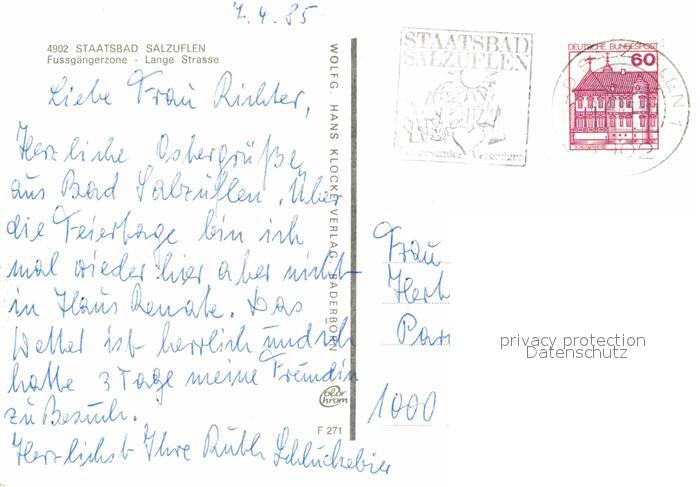 7.4.85
4902 STAATSBAD SALZUFLEN
Fussgängerzone - Lange Strasse
Liebe Frau Richter,
Herzliche Ostergrüße
aus Bad Salzuflen. Über
die Feiertage bin ich
mal wieder hier aber nicht
in Haus Renate. Das
Wetter ist herrlich und ich
hatte 3 Tage meine Freundin
zu Besuch.
Herzlichst Ihre Ruth Schluckebier
WOLFG. HANS KLOCKE VERLAG PADERBORN
color
chrom
F 271
STAATSBAD
SALZUFLEN
DEUTSCHE BUNDESPOST
60
Frau
Hert
Par
1000
privacy protection
Datenschutz